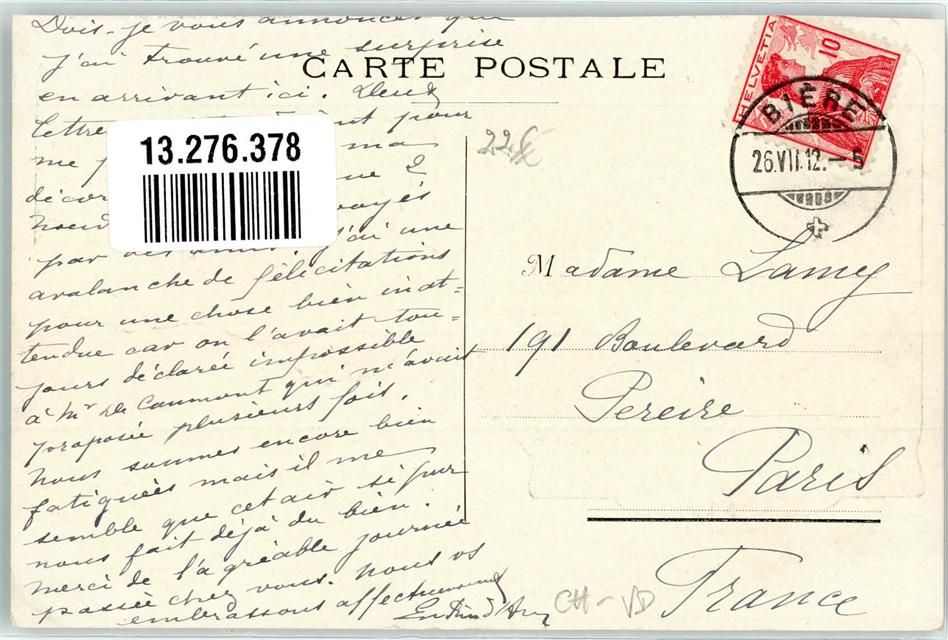 Dois-je vous annoncer que
j'ai trouvé une surprise
en arrivant ici. Deux
lettres pour
me ma
décor 2
par des j'ai une
avalanche de félicitations
pour une chose bien inat=
tendue car on l'avait tou=
jours déclarée impossible
à Mr de Caumont qui m'avait
proposée plusieurs fois.
Nous sommes encore bien
fatiguées mais il me
semble que cet air si pur
nous fait déjà du bien.
Merci de l'agréable journée
passée chez vous. Nous vs
embrassons affectueusement
CARTE POSTALE
13.276.378
22
HELVETIA
10
BIÈRE
26.VII.12.-5
Madame Lamey
191 Boulevard
Pereire
Paris
France
CH-VD